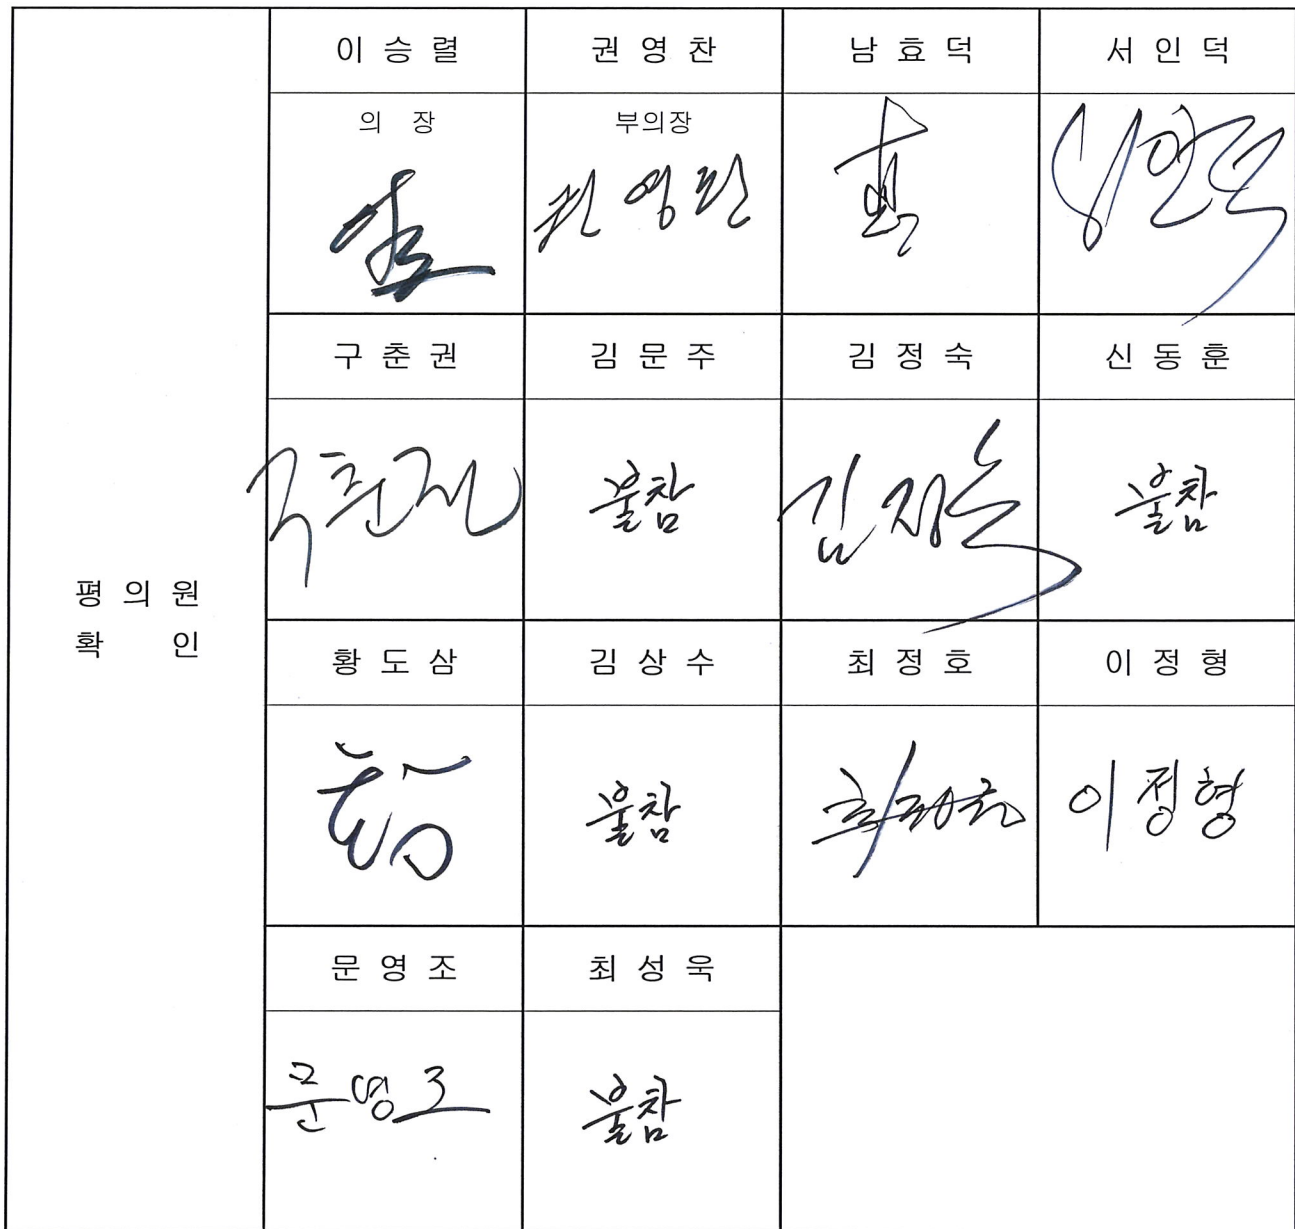 이 승 렬 권 영 찬 남 효 덕 서 인 덕
의 장 부의장
권 영 찬 서인덕
구 춘 권 김 문 주 김 정 숙 신 동 훈
구춘권 불참 김정숙 불참
평 의 원
확 인
황 도 삼 김 상 수 최 정 호 이 정 형
불참 최정호 이정형
문 영 조 최 성 욱
문영조 불참